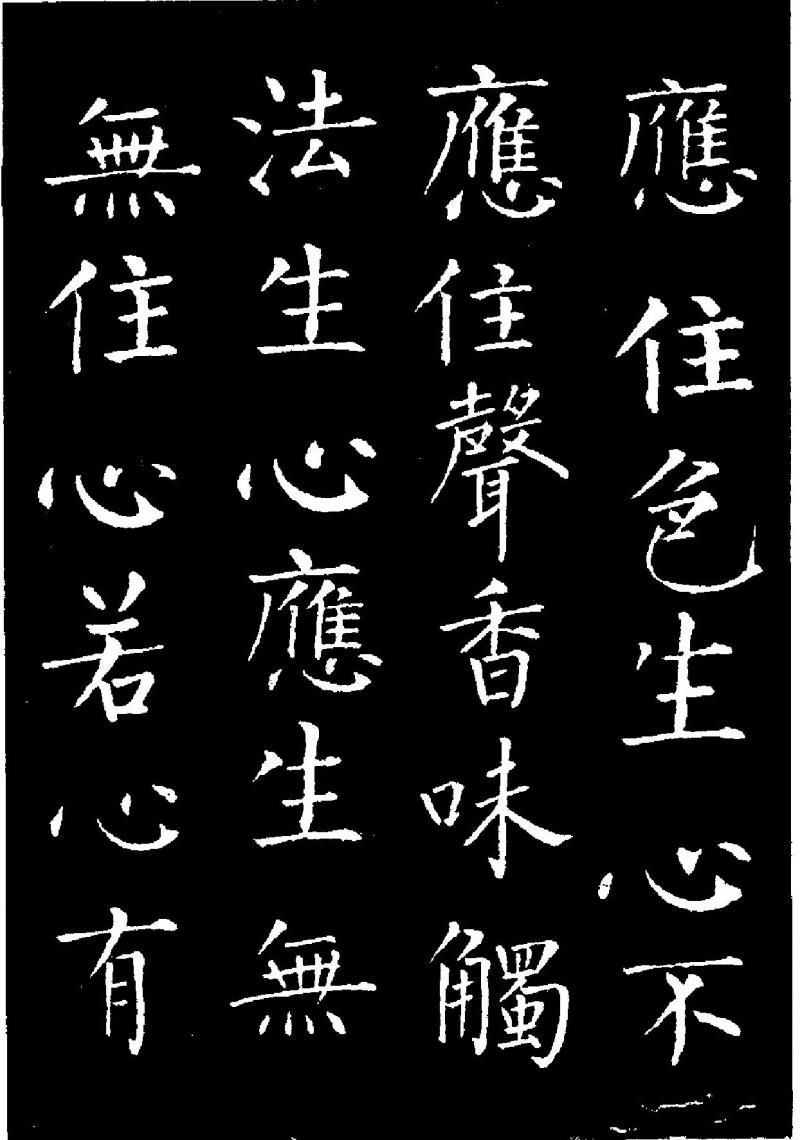 應住色生心不
應住聲香味觸
法生心應生無
無住心若心有